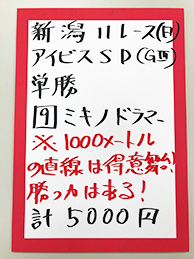 新潟11レース(日)
アイビスSD(GⅢ)
単勝
9 ミキノドラマー
※1000メートル
の直線は得意舞台!
勝つ力はある!
計5000円